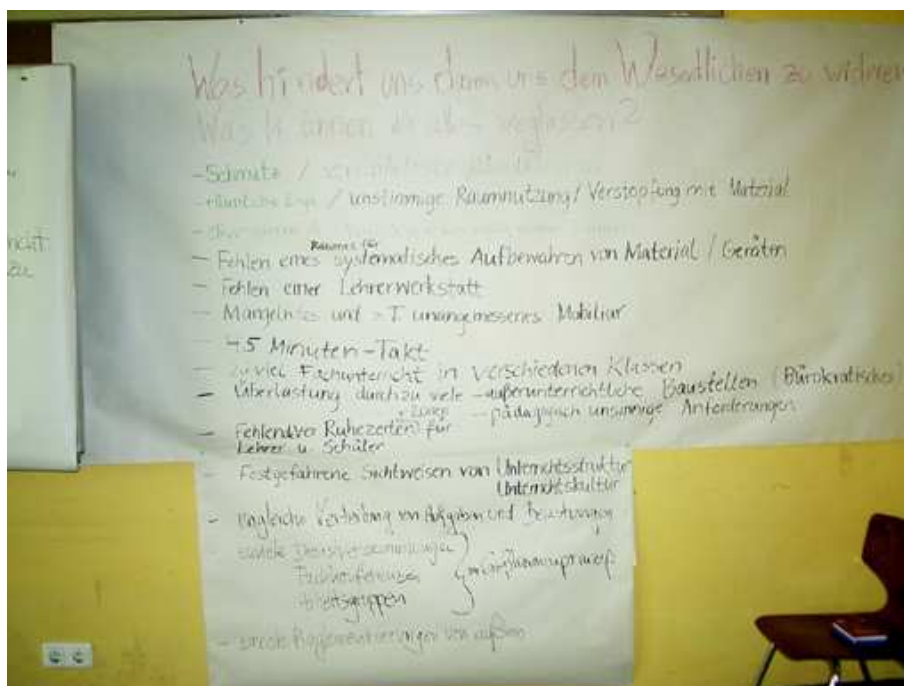 Was hindert uns daran uns dem Wesentlichen zu widmen
Was können wir alles weglassen?
- Schmutz /
/ unstimmige Raumnutzung / Verstopfung mit Material
- Fehlen eines Raumes für systematisches Aufbewahren von Material / Geräten
- Fehlen einer Lehrerwerkstatt
- und z.T. unangemessenes Mobiliar
- 45 Minuten-Takt
- zu viel Fachunterricht in verschiedenen Klassen
- Überlastung durch zu viele - außerunterrichtliche Baustellen (Bürokratisches)
- pädagogisch unsinnige Anforderungen
- Ruhezeiten für
Lehrer u. Schüler
- Festgefahrene Sichtweisen von Unterrichtsstruktur
Unterrichtskultur
- ungleiche Verteilung von Aufgaben und
Fachkonferenzen
Arbeitsgruppen
- Reglementierungen von außen